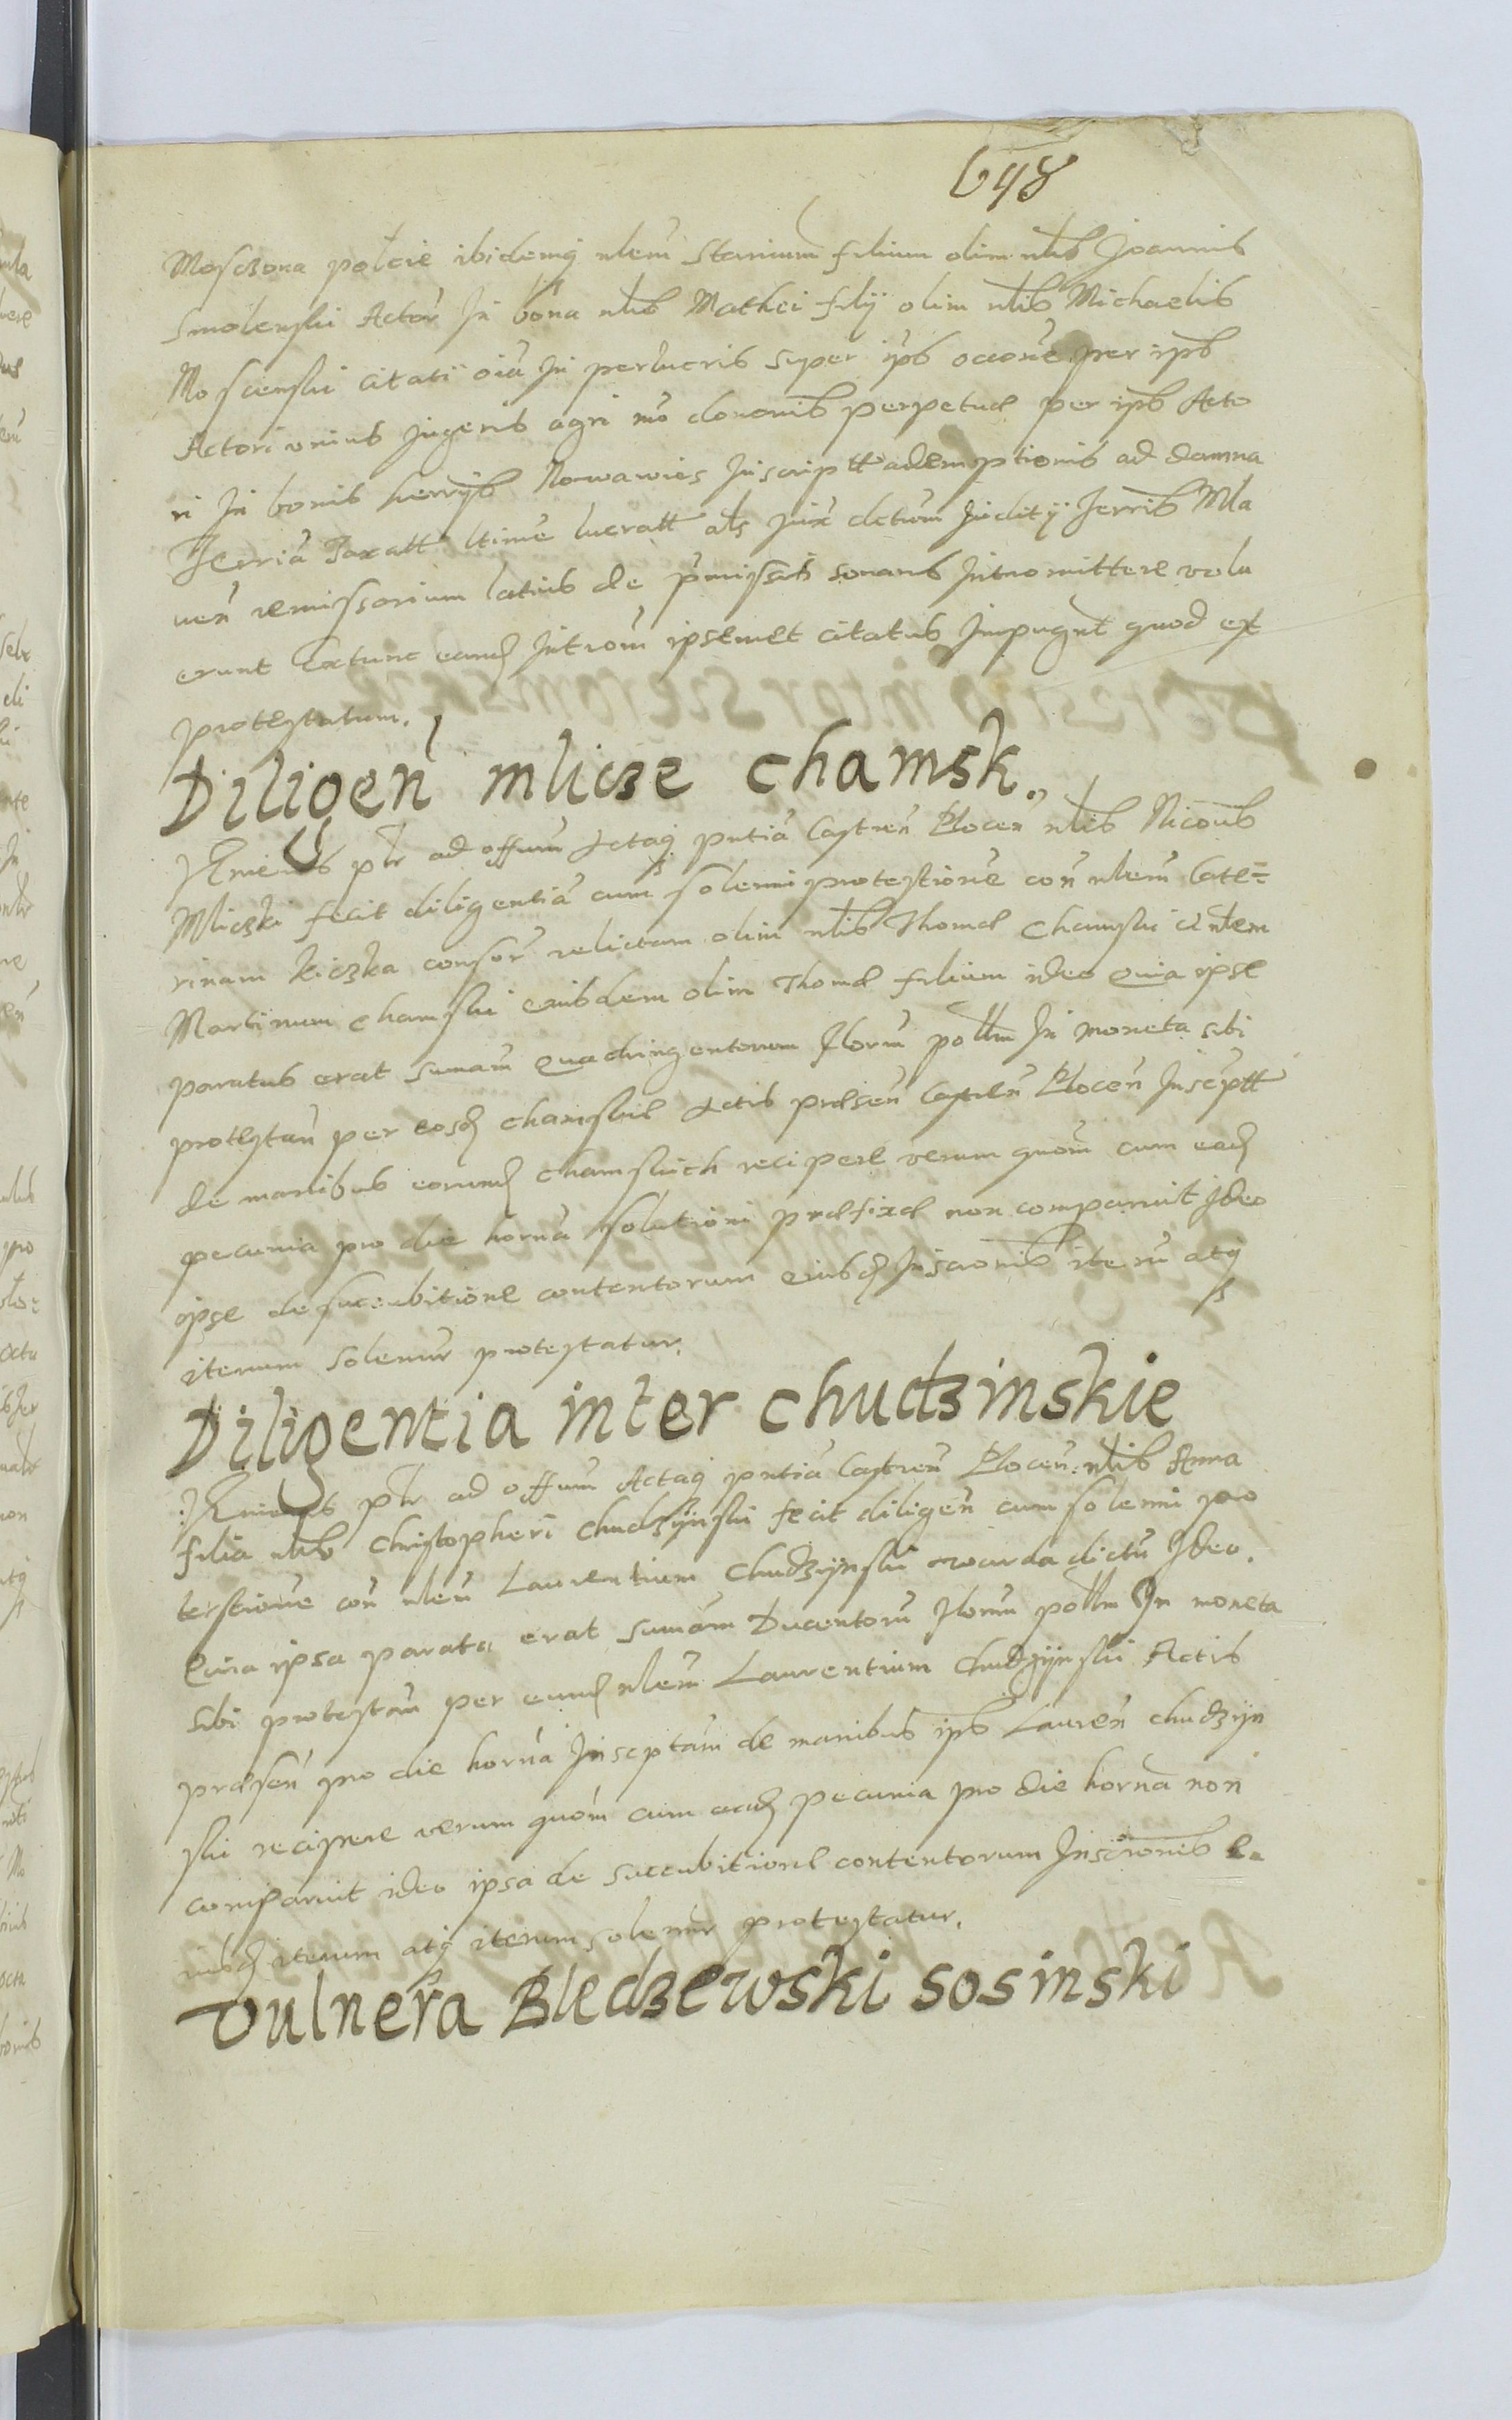 648
Mosczona poltcie ibidemq nlem Stanium filium olim nlis Joannis
Smolenski Actor In bona nlis Mathei filij olim nlis Michaelis
Moscenski citati oia In perlucris super ips occone per ips
Actori unius jugeris agri mo dononis perpetuae per ips Acto
ri In bonis herrijs Nowawies Inscriptt ademptionis ad damna
Terria Taxatt ltime lucratt als jux detum Juditij Terris Mla
ven remissorium latius de pmissis sonans Intromittere volu
erunt Extunc eand Introm ipsemet citatus Impugnt quod est
protestatum.
Diligen mlicze chamsk.
Veniens ptr ad offum Actaq pntia Castren Plocen nlis Nicous
Mliczki fecit diligentia cum solenni protestione con nlem Cate=
rinam kiczka consor relictam olim nlis Thomae Chamski et nlem
Martinum Chamski eiusdem olim Thomae filium ideo quia ipse
paratus erat sumam quadringentorum Floru pollm In moneta sibi
protestan per eosd chamskie Actis praesen Castren Plocen Inscptt
de manibus eorund chamskich recipere verum quom cum ead
pecunia pro die horna solutioni praefixae non comparuit Ideo
ipse de succubitione contentorum eiusd Inscronis iteru atq
iterum solenur protestatur.
Diligentia inter chudzinskie
Veniens ptr ad offum Actaq pntia Castren Plocen nlis Anna
filia nlis Christopheri Chudzijnski fecit diligen cum solenni pro
testione con nlem Laurentium Chudzijnski dictu Ideo.
Quia ipsa parata erat sumam Ducentoru Floru pollm In moneta
sibi protestan per eund nlem Laurentium Chudzijnski Actis
praesen pro die horna Inscptam de manibus ips Lauren chudzijn
ski recipere verum quom cum ead pecunia pro die horna non
comparuit ideo ipsa de succubitione contentorum Inscronis e
iusd iterum atq iterum solenur protestatur.
Vulnera Bledzewski sosinski